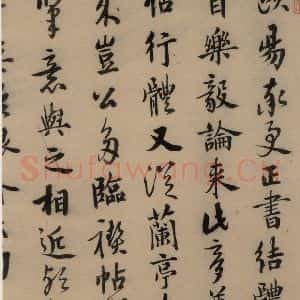 歐陽率更正書結體
自樂毅論來此
帖行體又從蘭亭
來豈公多臨禊帖
筆意與之相近
Shufawang.Cn